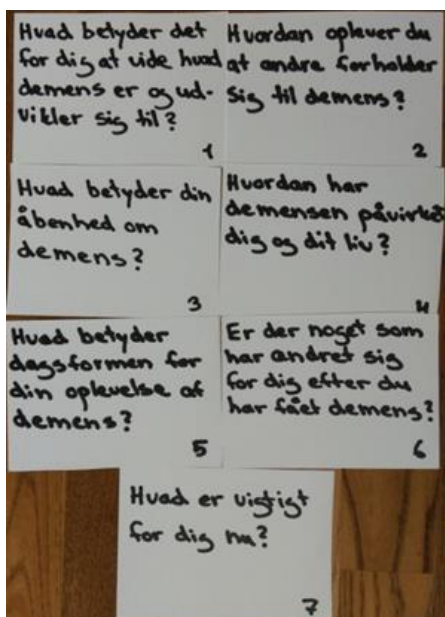 Hvad betyder det
for dig at vide hvad
demens er og ud-
vikler sig til?
1
Hvordan oplever du
at andre forholder
sig til demens?
2
Hvad betyder din
åbenhed om
demens?
3
Hvordan har
demensen påvirket
dig og dit liv?
4
Hvad betyder
dagsformen for
din oplevelse af
demens?
5
Er der noget som
har andret sig
for dig efter du
har fået demens?
6
Hvad er vigtigt
for dig nu?
7